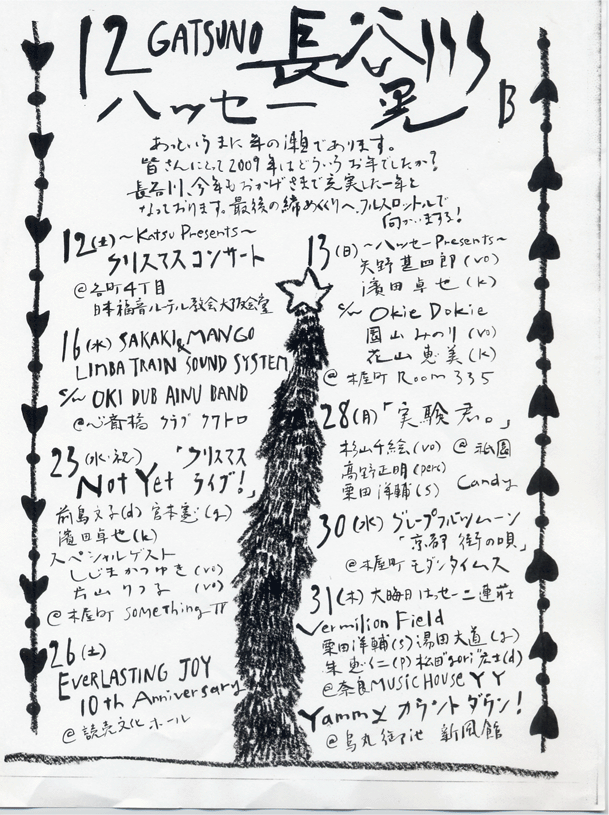 12 GATSUNO 長谷川
ハッセー 晃 B
あっというまに年の瀬であります。
皆さんにとって2009年はどういうお年でしたか?
長谷川、今年もおかげさまで充実した一年と
なっております。最後の締めくくりへ、フルスロットルで
向かいまする!
12(土)~Katsu Presents~
クリスマスコンサート
@谷町4丁目
日本福音ルーテル教会大阪会堂
16(水) SAKAKI MANGO
& LIMBA TRAIN SOUND SYSTEM
c/w OKI DUB AINU BAND
@心斎橋 クラブクアトロ
23(水・祝)「クリスマス
Not Yet ライブ!」
前島文子(d) 宮本憲(g)
濱田卓也(k)
スペシャルゲスト
しじまかつゆき(vo)
片山りつ子(vo)
@木屋町 something IV
26(土)
EVERLASTING JOY
10th Anniversary
@読売文化ホール
13(日)~ハッセーPresents~
矢野甚四郎(vo)
濱田卓也(k)
c/w Okie Dokie
園山みのり(vo)
花山恵美(k)
@木屋町 Room 335
28(月)「実験君。」
杉山千絵(vo) @祇園
高野正明(perc)
栗田洋輔(s) Candy
30(水)グレープフルツムーン
「京都 街の唄」
@木屋町 モダンタイムス
31(木)大晦日はセーニ連荘
Vermilion Field
栗田洋輔(s) 湯田大道(g)
朱恵仁(p) 松田"gori"広士(d)
@奈良MUSIC HOUSE YY
Yammy カウントダウン!
@烏丸御池 新風館